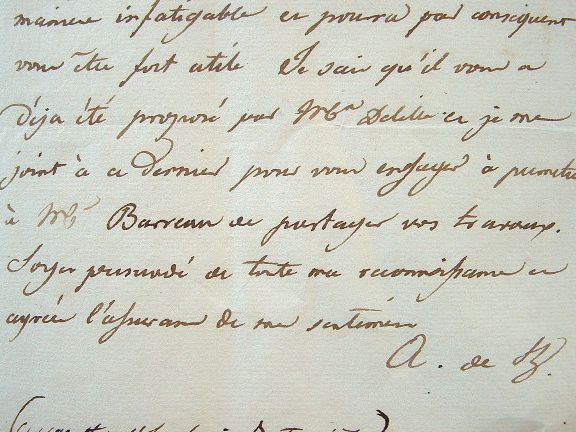 maniere infatigable et pourra par consequent
vous être fort utile Je sais qu'il vous a
déja été proposé par Mr Delille et je me
joint à ce dernier pour vous engager à permettre
à Mr Barreau de partager vos travaux.
Soyez persuadé de toute ma reconnoissance et
agréer l'assurance de mes sentimens
A. de